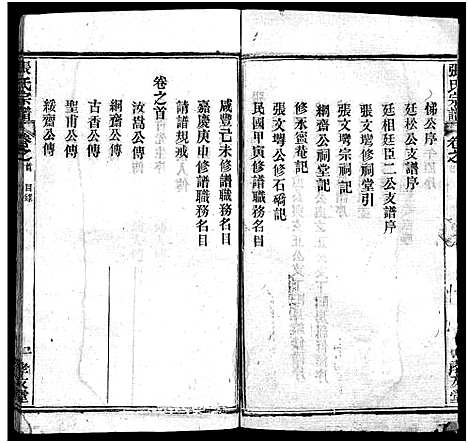 張氏宗譜
悌公序
廷松公支譜序
廷相廷臣二公支譜序
張文墀修祠堂引
張文墀宗祠記
綱齋公祠堂記
修永蜜菴記
張文墀公修石礄記
民國甲寅修譜職務名目
咸豐己未修譜職務名目
嘉慶庚申修譜職務名目
請譜規戒
卷之首
汝嵩公傳
綱齋公傳
古香公傳
聖甫公傳
綏齋公傳
張氏宗譜
卷之首
目錄